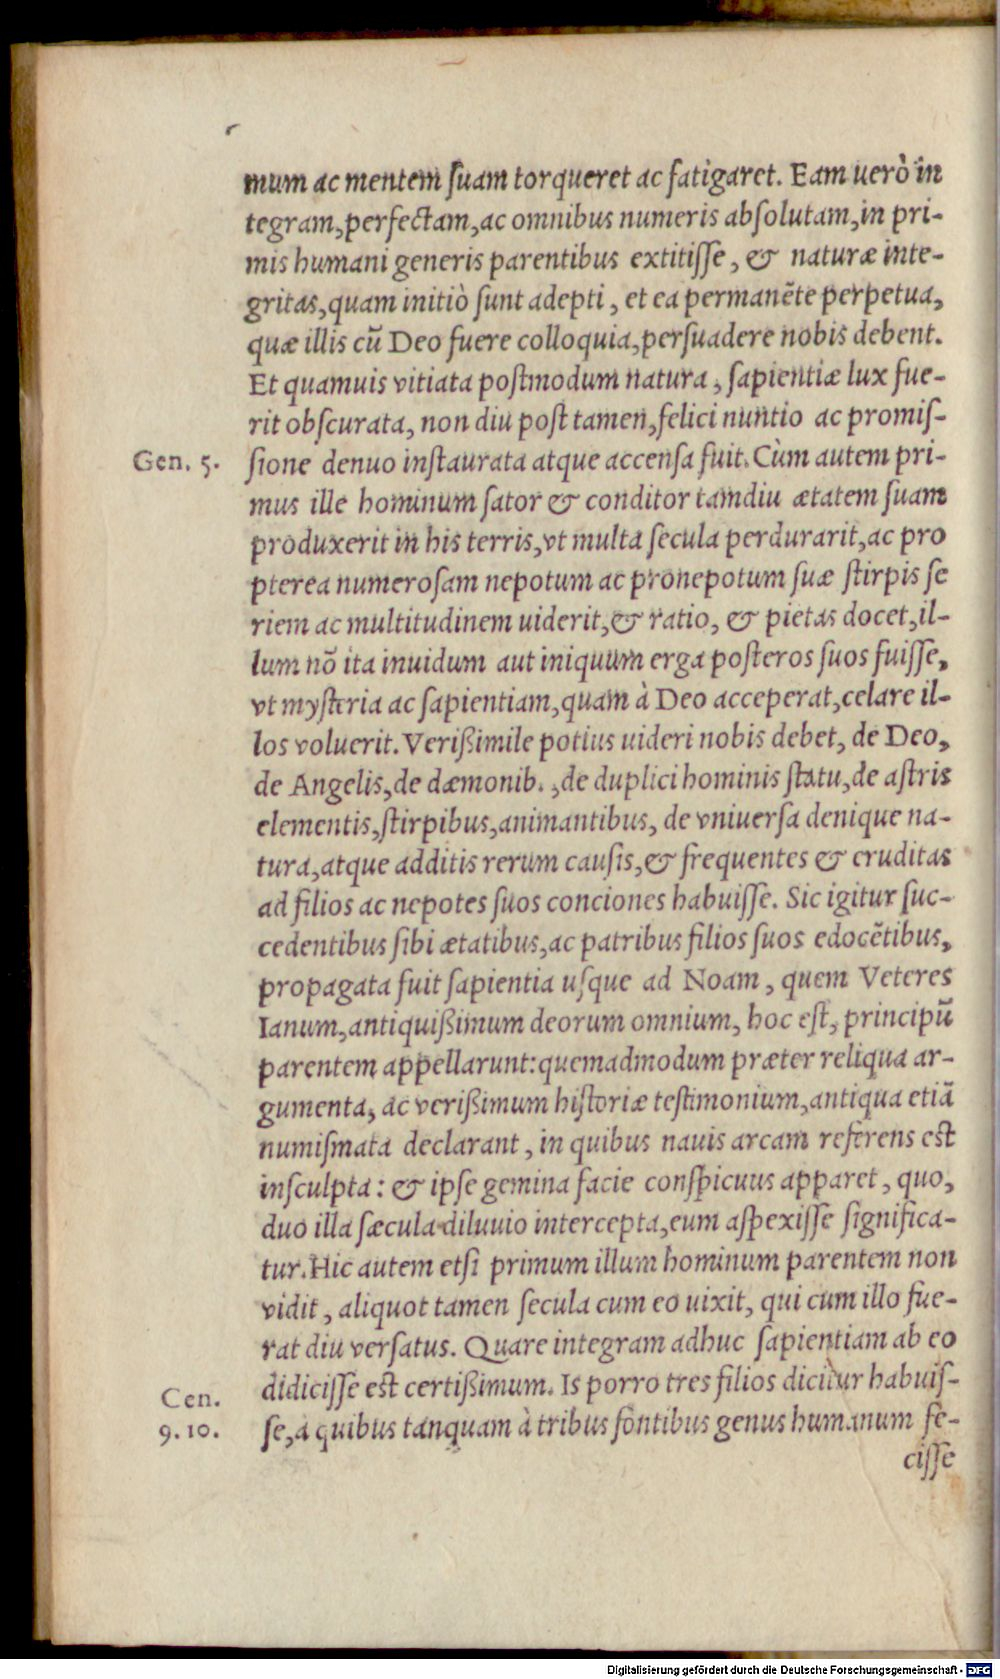 mum ac mentem ſuam torqueret ac fatigaret. Eam uerò in
tegram,perfectam,ac omnibus numeris abſolutam,in pri-
mis humani generis parentibus extitiſſe, & naturæ inte-
gritas,quam initiò ſunt adepti, et ea permanẽte perpetua,
quæ illis cũ Deo fuere colloquia,perſuadere nobis debent.
Et quamuis vitiata poſtmodum natura, ſapientiæ lux fue-
rit obſcurata, non diu poſt tamen,felici nuntio ac promiſ-
Gen. 5.
ſione denuo inſtaurata atque accenſa fuit. Cùm autem pri-
mus ille hominum ſator & conditor tamdiu ætatem ſuam
produxerit in his terris,vt multa ſecula perdurarit,ac pro
pterea numeroſam nepotum ac pronepotum ſuæ ſtirpis ſe
riem ac multitudinem uiderit,& ratio, & pietas docet,il-
lum nõ ita inuidum aut iniquum erga poſteros ſuos fuiſſe,
vt myſteria ac ſapientiam,quam à Deo acceperat,celare il-
los voluerit. Verißimile potius uideri nobis debet, de Deo,
de Angelis,de dæmonib. ,de duplici hominis ſtatu,de aſtris
elementis,ſtirpibus,animantibus, de vniuerſa denique na-
tura,atque additis rerum cauſis,& frequentes & eruditas
ad filios ac nepotes ſuos conciones habuiſſe. Sic igitur ſuc-
cedentibus ſibi ætatibus,ac patribus filios ſuos edocẽtibus,
propagata fuit ſapientia uſque ad Noam, quem Veteres
Ianum,antiquißimum deorum omnium, hoc eſt, principũ
parentem appellarunt:quemadmodum præter reliqua ar-
gumenta, ac verißimum hiſtoriæ teſtimonium,antiqua etiã
numiſmata declarant, in quibus nauis arcam referens eſt
inſculpta: & ipſe gemina facie conſpicuus apparet, quo,
duo illa ſæcula diluuio intercepta,eum aſpexiſſe ſignifica-
tur. Hic autem etſi primum illum hominum parentem non
vidit, aliquot tamen ſecula cum eo uixit, qui cum illo fue-
rat diu verſatus. Quare integram adhuc ſapientiam ab eo
didiciſſe eſt certißimum. Is porro tres filios dicitur habuiſ-
Cen.
9. 10.
ſe,à quibus tanquam à tribus fontibus genus humanum fe-
ciſſe
Digitalisierung gefördert durch die Deutsche Forschungsgemeinschaft - DFG